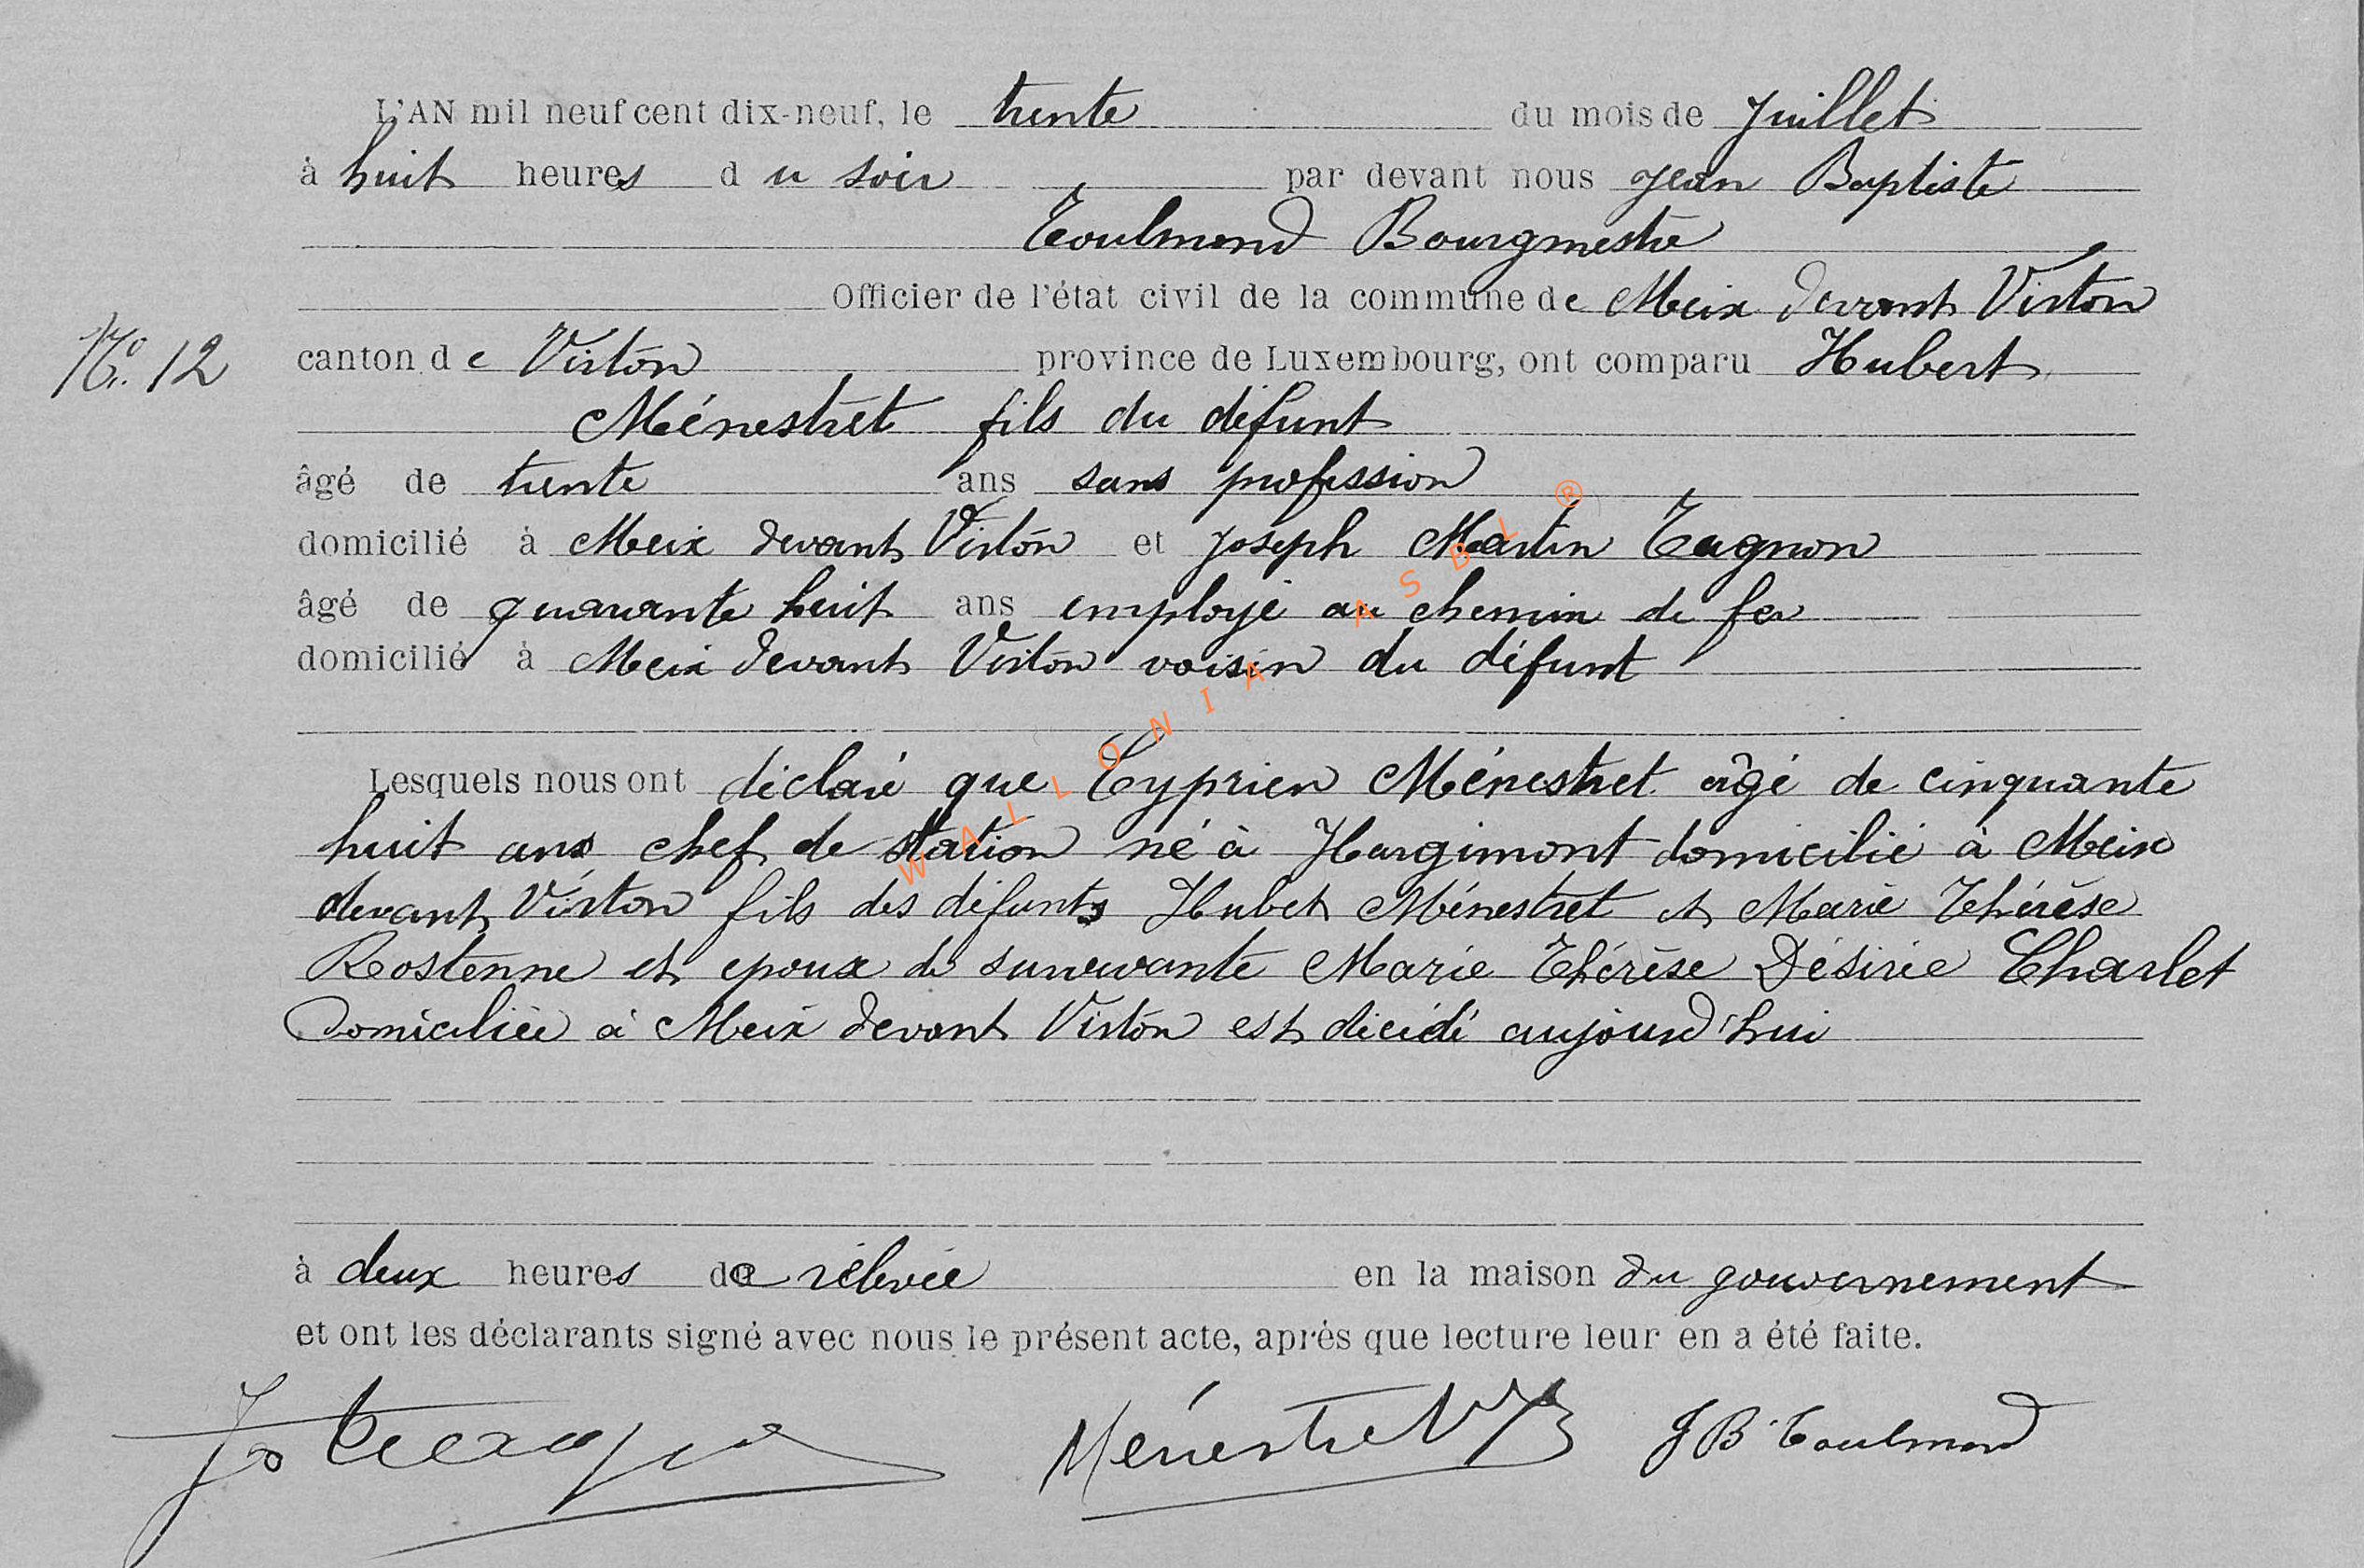 L'AN mil neuf cent dix-neuf, le trente du mois de Juillet
à huit heures du soir par devant nous Jean Baptiste
Toulmond Bourgmestre
Officier de l'état civil de la commune de Meix devant Virton
N° 12 canton de Virton province de Luxembourg, ont comparu Hubert
Ménestret fils du défunt
âgé de trente ans sans profession
domicilié à Meix devant Virton et Joseph Martin
âgé de quarante huit ans employé au chemin de fer
domicilié à Meix devant Virton voisin du défunt
Lesquels nous ont déclaré que Cyprien Ménestret âgé de cinquante
huit ans chef de station né à Hargimont domicilié à Meix
devant Virton fils des défunts Hubert Ménestret et Marie Thérèse
Rostenne et epoux de survivante Marie Thérèse Désirée Charlet
Domiciliée à Meix devant Virton est décédé aujourd'hui
à deux heures de rélevée en la maison du gouvernement
et ont les déclarants signé avec nous le présent acte, après que lecture leur en a été faite.
Ménestret JB Toulmond
WALLONIA ASBL ®